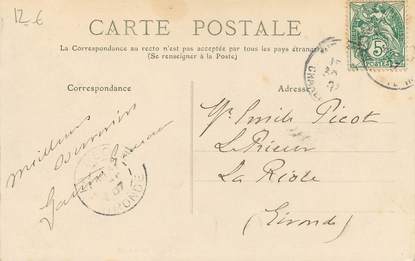 12-6
CARTE POSTALE
La Correspondance au recto n'est pas acceptée par tous les pays étrangers
(Se renseigner à la Poste)
Correspondance
Adresse
5c
Meilleurs
souvenirs
Mr Emile Picot
Le Prieur
La Réole
(Gironde)